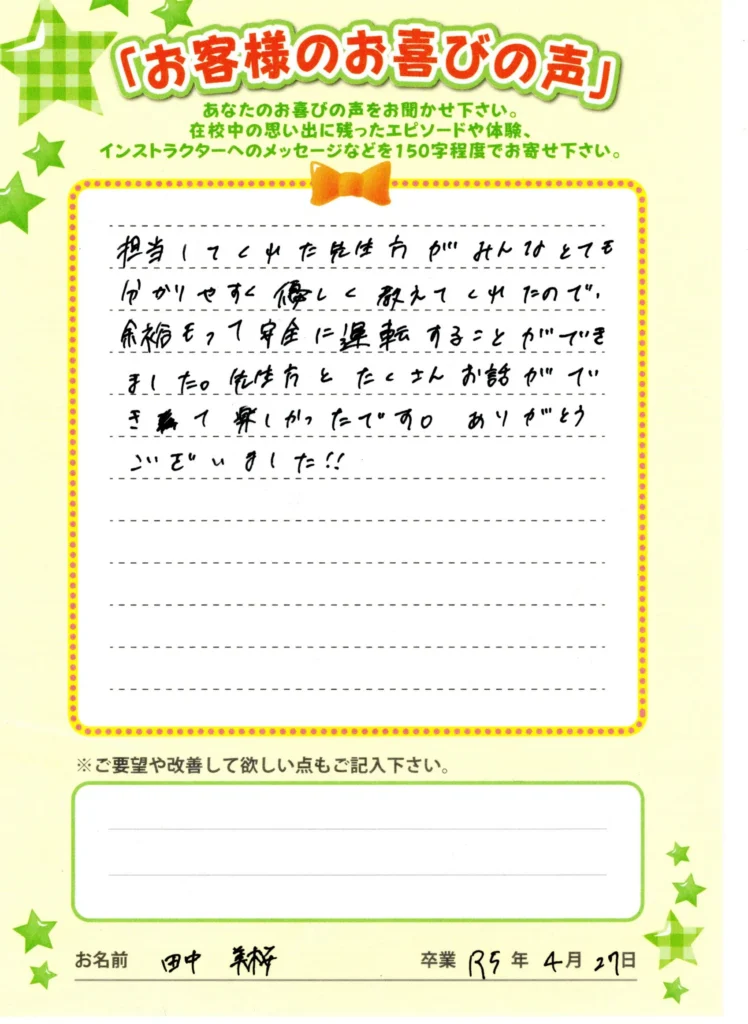 「お客様のお喜びの声」
あなたのお喜びの声をお聞かせ下さい。
在校中の思い出に残ったエピソードや体験、
インストラクターへのメッセージなどを150字程度でお寄せ下さい。
担当してくれた先生方がみんなとても
分かりやすく優しく教えてくれたので、
余裕もって安全に運転することができ
ました。先生方とたくさんお話がで
きて楽しかったです。ありがとう
ございました!!
※ご要望や改善して欲しい点もご記入下さい。
お名前 田中 美桜 卒業 R5年 4月 27日